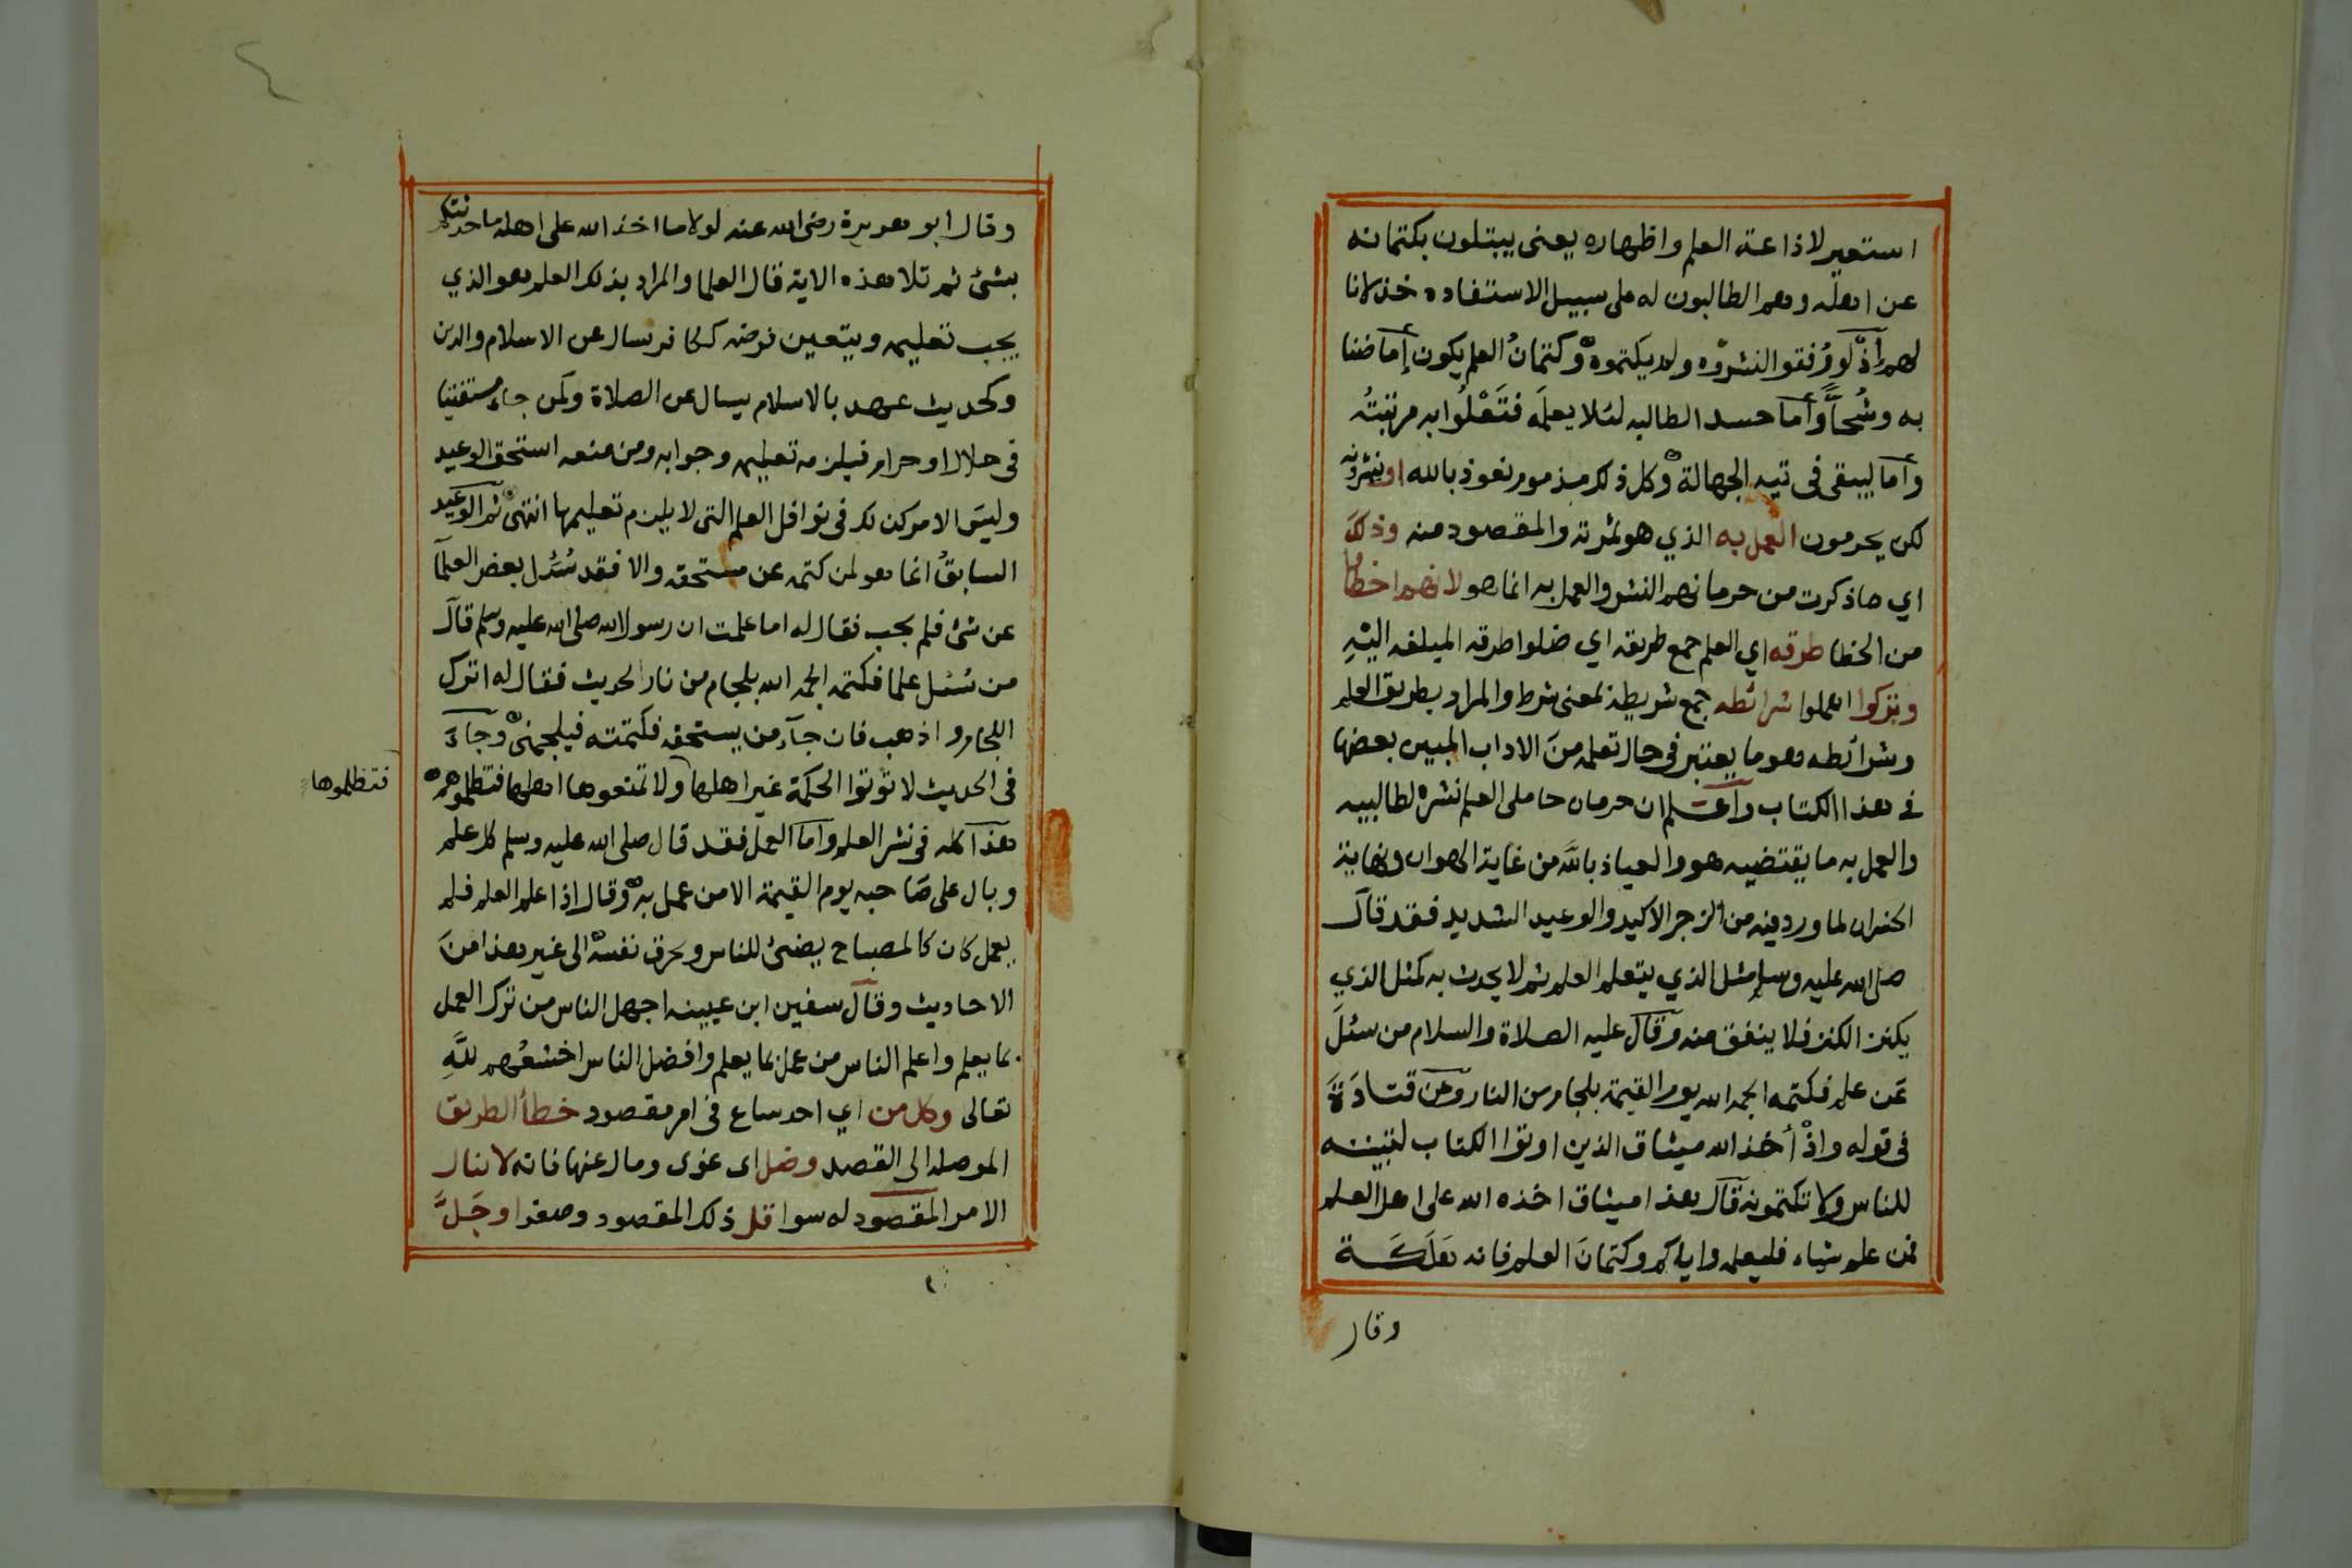 استعير لاذاعة العلم واظهاره يعنى يبتلون بكتمانه
عن اهله وهم الطالبون له على سبيل الاستفاده خذلانا
لهم أذْ لو وُفقوا لنشروه ولم يكتموه وكتمانُ العلم يكون إما ضنا
به وشُحاً وأما حسد الطالبه لئلا يعلمَه فتَعْلُوا به مرتبتُه
وأما ليبقى فى تيه الجهالة وكل ذلك مذموم نعوذ بالله او ينشرونه
لكن يحرمون العمل به الذي هو ثمرته والمقصود منه وذلك
اي ما ذكرت من حرمانهم النشر والعمل به انما هو لانهم اخطاوا
من الخطا طرقه اي العلم جمع طريقه اي ضلوا طرقه المبلغه اليْهِ
وتركوا اهملوا شرائطه جمع شريطة بمعنى شرط والمراد بطريق العلم
وشرائطه وهو ما يعتبر فى حال تعلمه منَ الاداب المبين بعضها
فى هذا الكتاب واعلم ان حرمان حاملى العلم نشره لطالبيه
والعمل به ما يقتضيه هو والعياذ باللَّه من غاية الهوان ونهاية
الخسران لما ورد فيه من الزجر الاكيد والوعيد الشديد فقد قال
صلى الله عليه وسلم مثل الذي يتعلم العلم ثم لا يحدث به كمثل الذي
يكنز الكنز فلا ينفق منه وقال عليه الصلاة والسلام من سئلَ
عَن علم فكتمه الجمه الله يوم القيمة بلجام من النار وعن قتادَةَ
فى قوله واذْ أخذ الله ميثاق الذين اوتوا الكتاب لتبيننه
للناس ولا تكتمونه قال هذا ميثاق اخذه الله على اهل العلم
فمن علم شياء فليعلمه واياكم وكتمانَ العلم فانه هَلَكَة
وقال
وقال ابو هريرة رضى الله عنه لولا ما اخذ الله على اهله ما حدثتكم
بشئ ثم تلا هذه الاية قال العلما والمراد بذلك العلم هو الذي
يجب تعليمه ويتعين فرضه ككافر يسال عن الاسلام والدين
وكحديث عهد بالاسلام يسال عن الصلاة وكمن جاء مستفتيا
فى حلال او حرام فيلزمه تعليمه وجوابه ومن منعه استحق الوعيد
وليسَ الامر كذلك فى نوافل العلم التى لا يلزم تعليمها انتهى ثم الوعيد
السابقُ انما هو لمن كتمه عن مستحقه والا فقد سُئل بعض العلمآ
عن شئ فلم يجب فقال له اما علمت ان رسول الله صلى الله عليه وسلم قال
من سُئل علما فكتمه الجمه الله بلجام من نار الحديث فقال له اترك
اللجام واذهب فان جآء من يستحقه فكتمته فيلجمنى وجاءَ
فى الحديث لا تؤتوا الحكمة غير اهلها ولا تمنعوها اهلها فتظلموهم
فتظلموها
هذا كله فى نشر العلم واما العمل فقد قال صلى الله عليه وسلم كل علم
وبال على صَاحبه يوم القيمة الا من عمل به وقال اذا علم العلم فلم
يعمل كان كالمصباح يضئ للناس ويحرق نفسه الى غير هذا منَ
الاحاديث وقال سفين ابن عيينه اجهل الناس من ترك العمل
بما يعلم واعلم الناس من عمل بما يعلم وافضل الناس اخشعُهم للَّهِ
تعالى وكل من اي احد ساع فى امر مقصود خطأ الطريق
الموصله الى القصد وضل اى غوى ومال عنها فانه لا ينال
الامر المقصود له سوا قل ذلك المقصود وصغر او جَلَّ